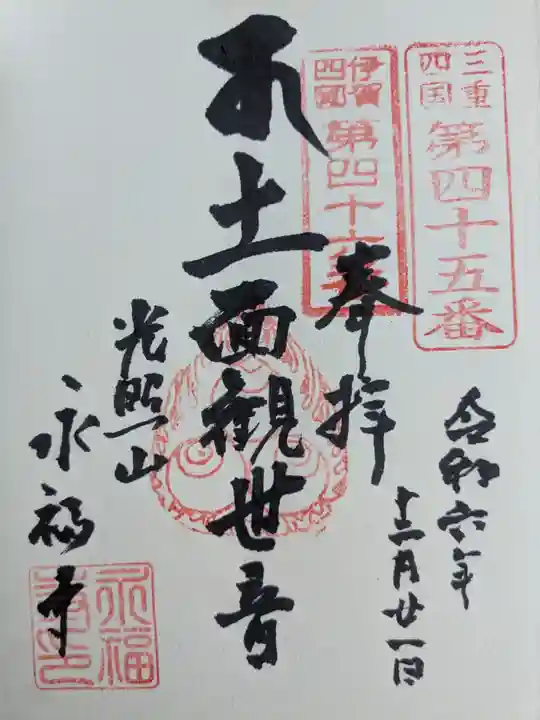 三重
四国
第四十五番
伊賀
四國
第四十
奉拝
令和六年
十二月廿一日
十一面觀世音
光照山
永福寺
永福
寺印